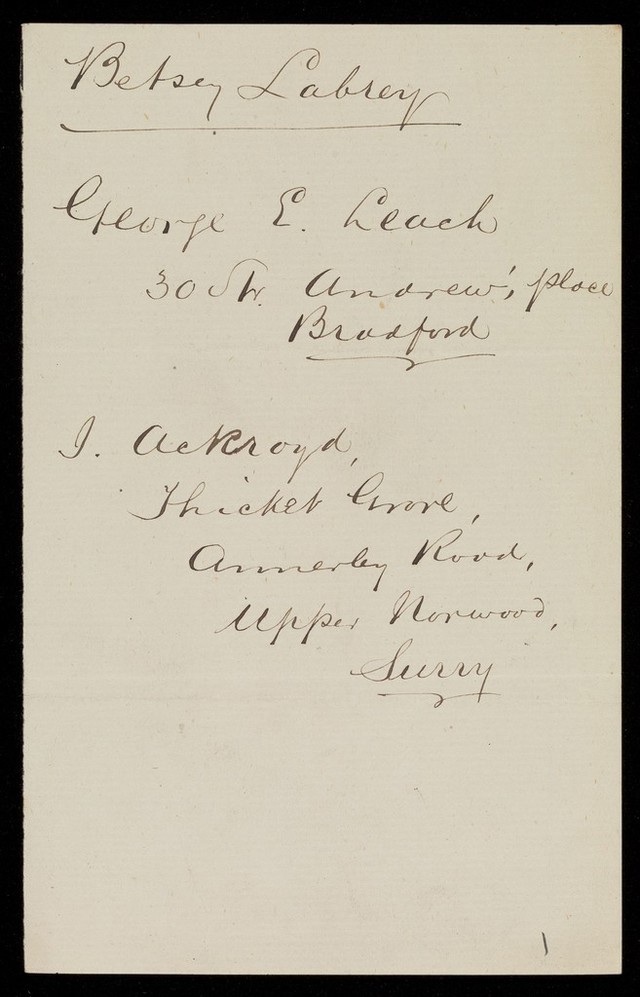 Betsey Labrey
George E. Leach
30 St. Andrew's place
Bradford
J. Ackroyd,
Thicket Grove,
Annerley Road,
Upper Norwood,
Surry
1